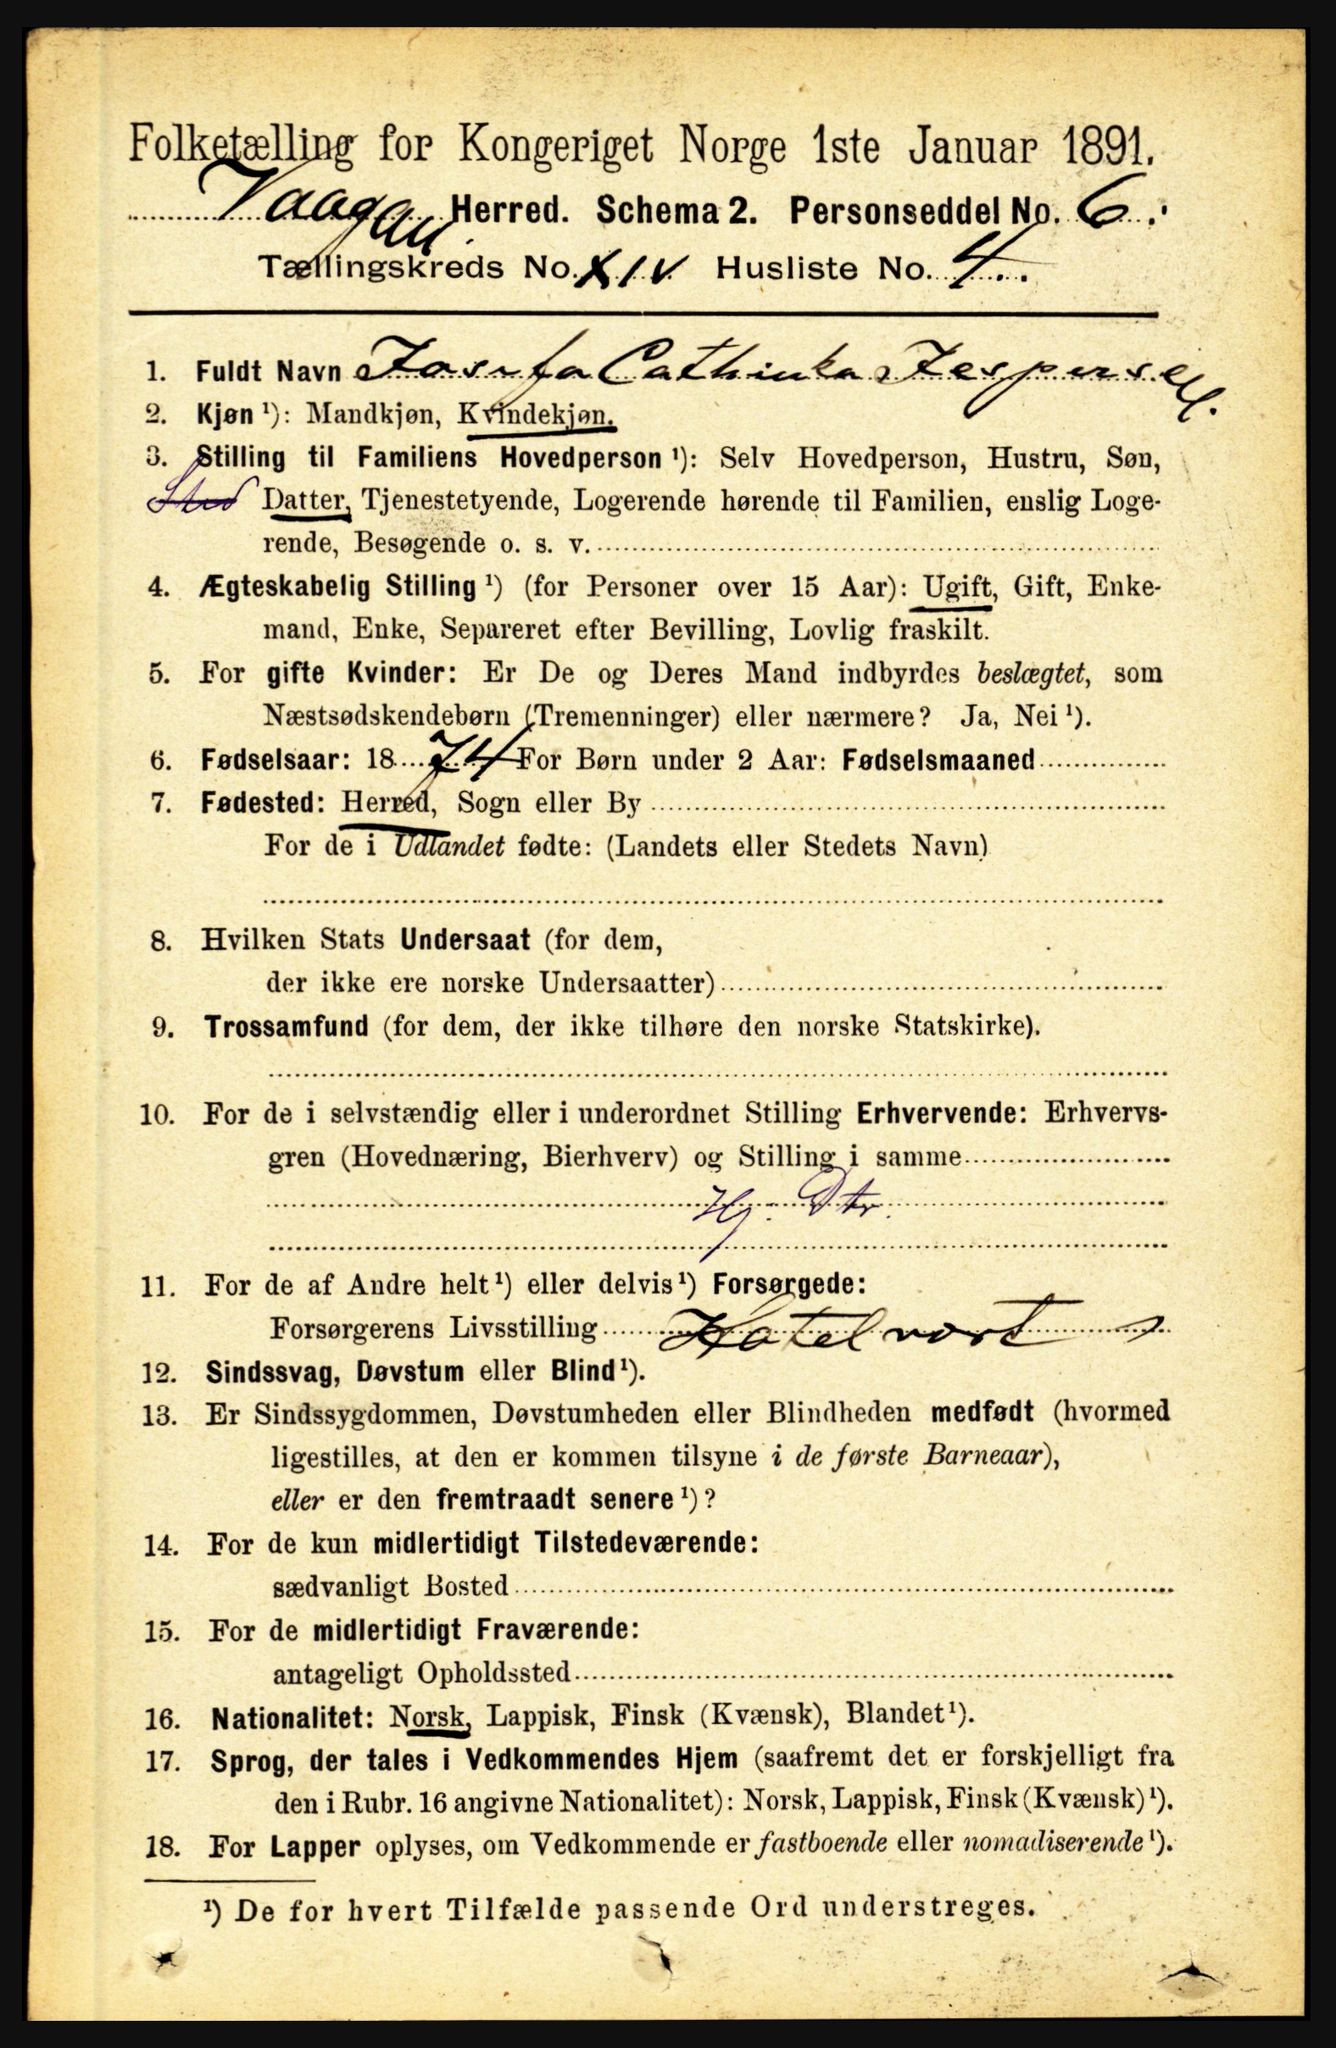 Folketælling for Kongeriget Norge 1ste Januar 1891.
Vaagan Herred. Schema 2. Personseddel No. 6.
Tællingskreds No. XIV Husliste No. 4.
1. Fuldt Navn Josefa Cathinka Jespersen.
2. Kjøn ¹): Mandkjøn, Kvindekjøn.
3. Stilling til Familiens Hovedperson ¹): Selv Hovedperson, Hustru, Søn,
Sted Datter, Tjenestetyende, Logerende hørende til Familien, enslig Loge-
rende, Besøgende o. s. v.
4. Ægteskabelig Stilling ¹) (for Personer over 15 Aar): Ugift, Gift, Enke-
mand, Enke, Separeret efter Bevilling, Lovlig fraskilt.
5. For gifte Kvinder: Er De og Deres Mand indbyrdes beslægtet, som
Næstsødskendebørn (Tremenninger) eller nærmere? Ja, Nei ¹).
6. Fødselsaar: 1874 For Børn under 2 Aar: Fødselsmaaned
7. Fødested: Herred, Sogn eller By
For de i Udlandet fødte: (Landets eller Stedets Navn)
8. Hvilken Stats Undersaat (for dem,
der ikke ere norske Undersaatter)
9. Trossamfund (for dem, der ikke tilhøre den norske Statskirke).
10. For de i selvstændig eller i underordnet Stilling Erhvervende: Erhvervs-
gren (Hovednæring, Bierhverv) og Stilling i samme
Hj. Dtr.
11. For de af Andre helt ¹) eller delvis ¹) Forsørgede:
Forsørgerens Livsstilling Hotelvært
12. Sindssvag, Døvstum eller Blind ¹).
13. Er Sindssygdommen, Døvstumheden eller Blindheden medfødt (hvormed
ligestilles, at den er kommen tilsyne i de første Barneaar),
eller er den fremtraadt senere ¹)?
14. For de kun midlertidigt Tilstedeværende:
sædvanligt Bosted
15. For de midlertidigt Fraværende:
antageligt Opholdssted
16. Nationalitet: Norsk, Lappisk, Finsk (Kvænsk), Blandet ¹).
17. Sprog, der tales i Vedkommendes Hjem (saafremt det er forskjelligt fra
den i Rubr. 16 angivne Nationalitet): Norsk, Lappisk, Finsk (Kvænsk) ¹).
18. For Lapper oplyses, om Vedkommende er fastboende eller nomadiserende ¹).
¹) De for hvert Tilfælde passende Ord understreges.